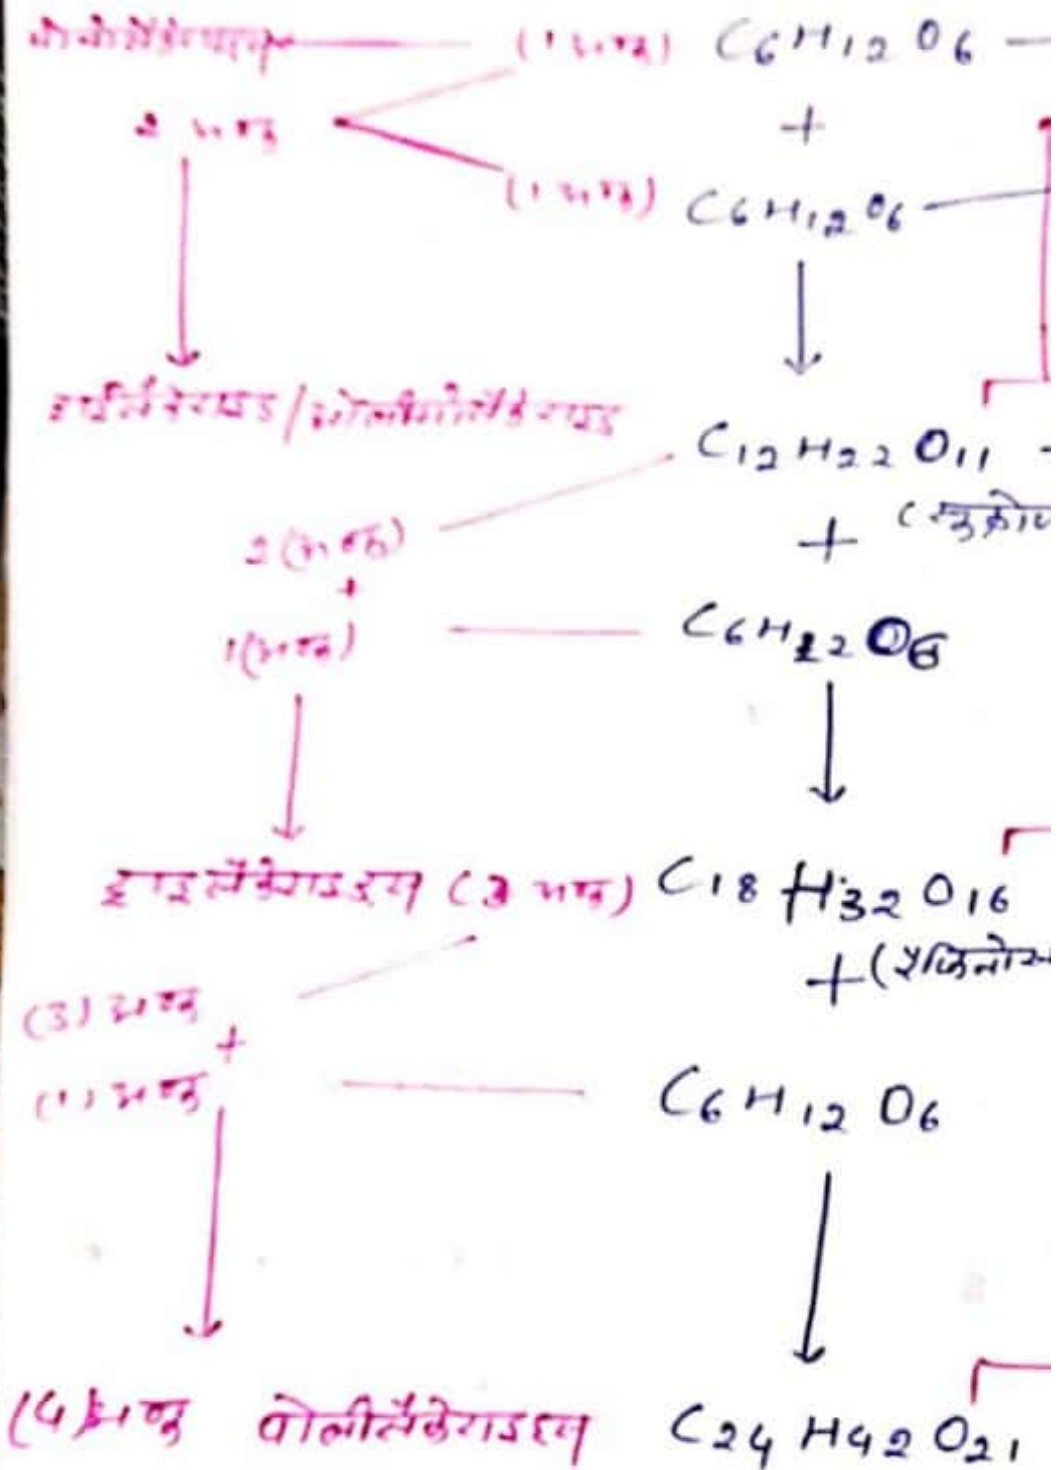 (1 अणु) C6H12O6
2 अणु
+
(1 अणु) C6H12O6
डाईसैकेराइड/ओलीगोसैकेराइड
C12H22O11
2(अणु)
+
+ (सुक्रो
1(अणु)
C6H12O6
ट्राइसैकेराइड्स (3 अणु) C18H32O16
+ (रैफिनो
(3) अणु
+
(1) अणु
C6H12O6
(4) अणु पोलीसैकेराइड्स C24H42O21